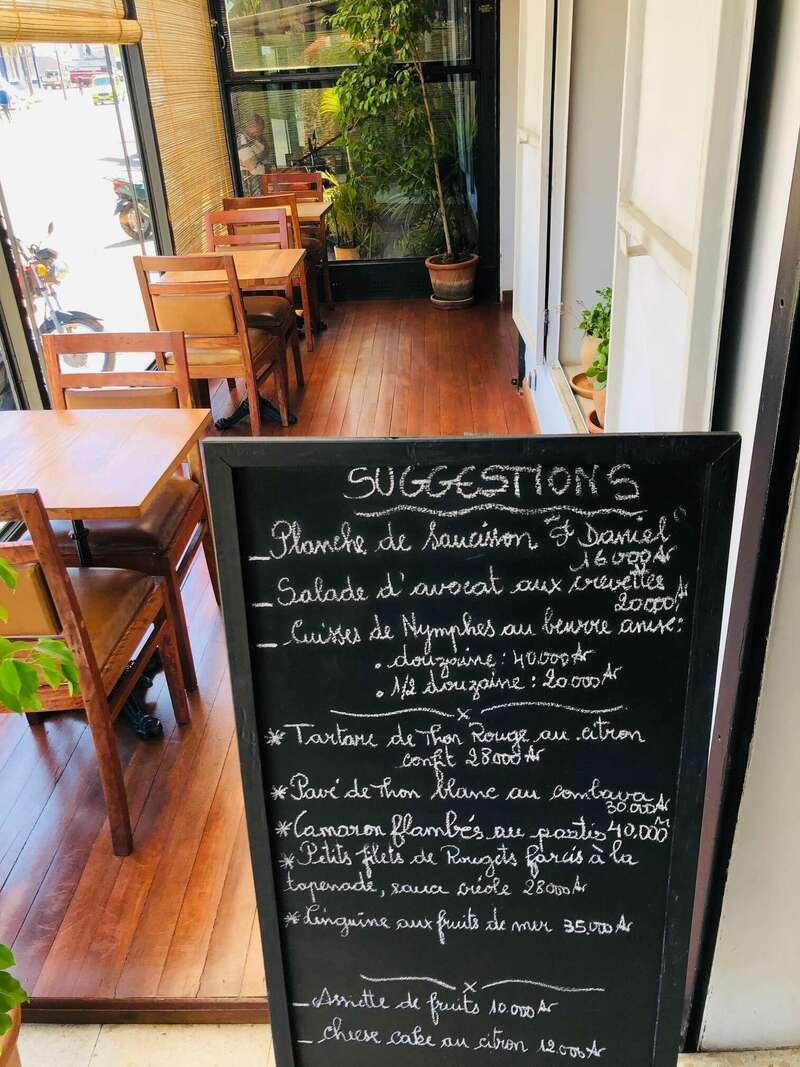 SUGGESTIONS
_ Planche de Saucisson "St Daniel"
16 000 Ar
_ Salade d'avocat aux crevettes
20 000 Ar
_ Cuisses de Nymphes au beurre anisé :
. douzaine : 40.000 Ar
. 1/2 douzaine : 20.000 Ar
x
* Tartare de Thon Rouge au citron
confit 28 000 Ar
* Pavé de Thon blanc au combava
30.000 Ar
* Camaron flambés au pastis 40,000 Ar
* Petits filets de Rougets farcis à la
tapenade, sauce créole 28 000 Ar
* Linguine aux fruits de mer 35,000 Ar
x
_ Assiette de fruits 10.000 Ar
_ cheese cake au citron 12.000 Ar